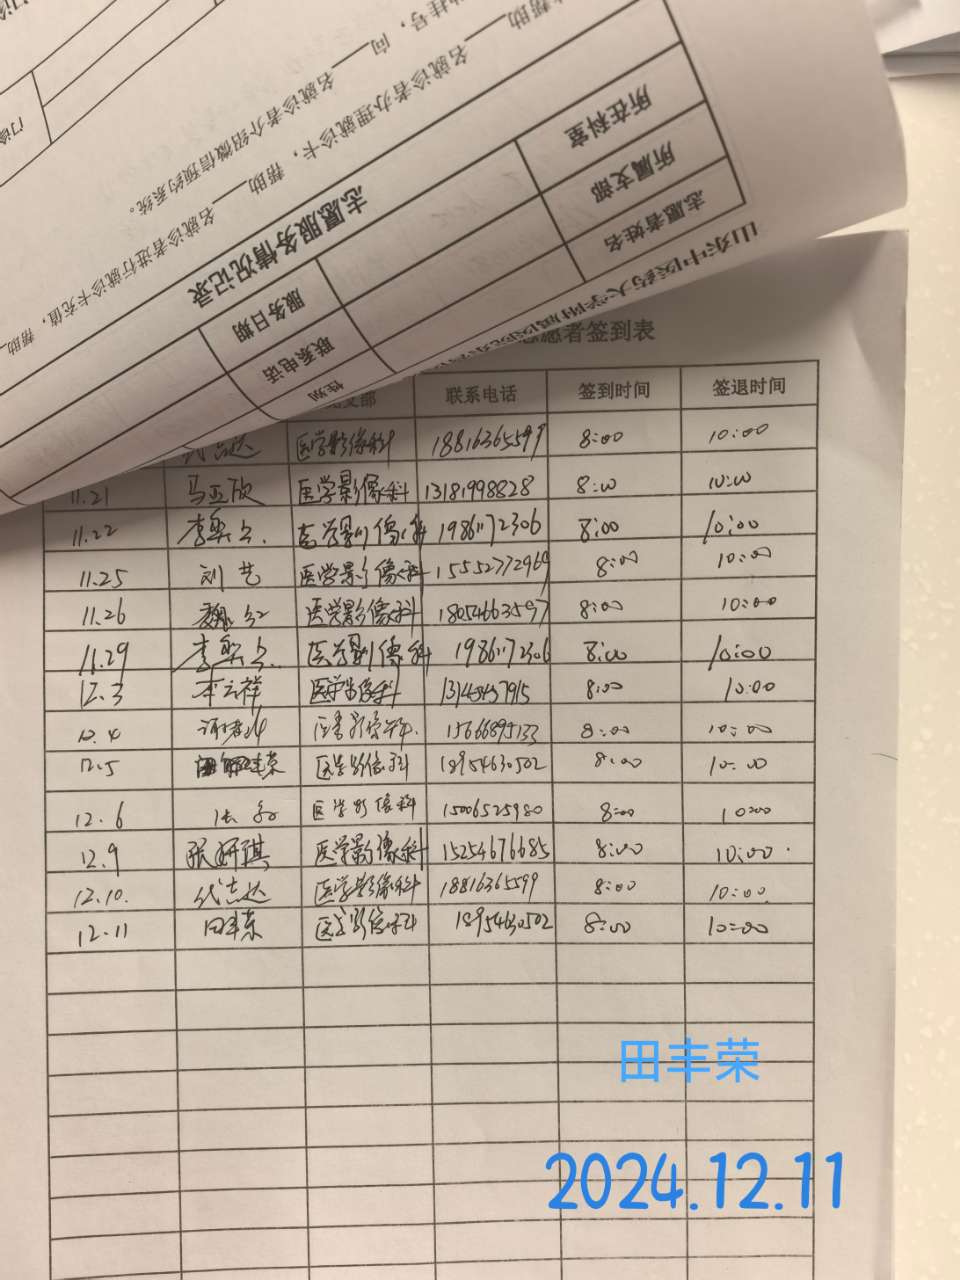 门诊
帮助
挂号，向____名就诊者介绍微信预约系统。
名就诊者办理就诊卡，帮助____名就诊者进行就诊卡充值，帮助
志愿服务情况记录
所在科室
所属支部
服务日期
志愿者姓名
性别
联系电话
山东中医药大学附属医院
志愿者签到表
支部 联系电话 签到时间 签退时间
代志达 医学影像科 18816365599 8:00 10:00
11.21 马亚欣 医学影像科 13181998828 8:00 10:00
11.22 医学影像科 19861172306 8:00 10:00
11.25 刘艺 医学影像科 15552772969 8:00 10:00
11.26 魏红 医学影像科 18054663597 8:00 10:00
11.29 医学影像科 19861172306 8:00 10:00
12.3 李云祥 医学影像科 8:00 10:00
12.4 医学影像科 15666895133 8:00 10:00
12.5 田丰荣 医学影像科 18954630502 8:00 10:00
12.6 医学影像科 15006525980 8:00 10:00
12.9 张妍琪 医学影像科 15254676685 8:00 10:00.
12.10. 代志达 医学影像科 18816365599 8:00 10:00
12.11 田丰荣 医学影像科 18954630502 8:00 10:00
田丰荣
2024.12.11